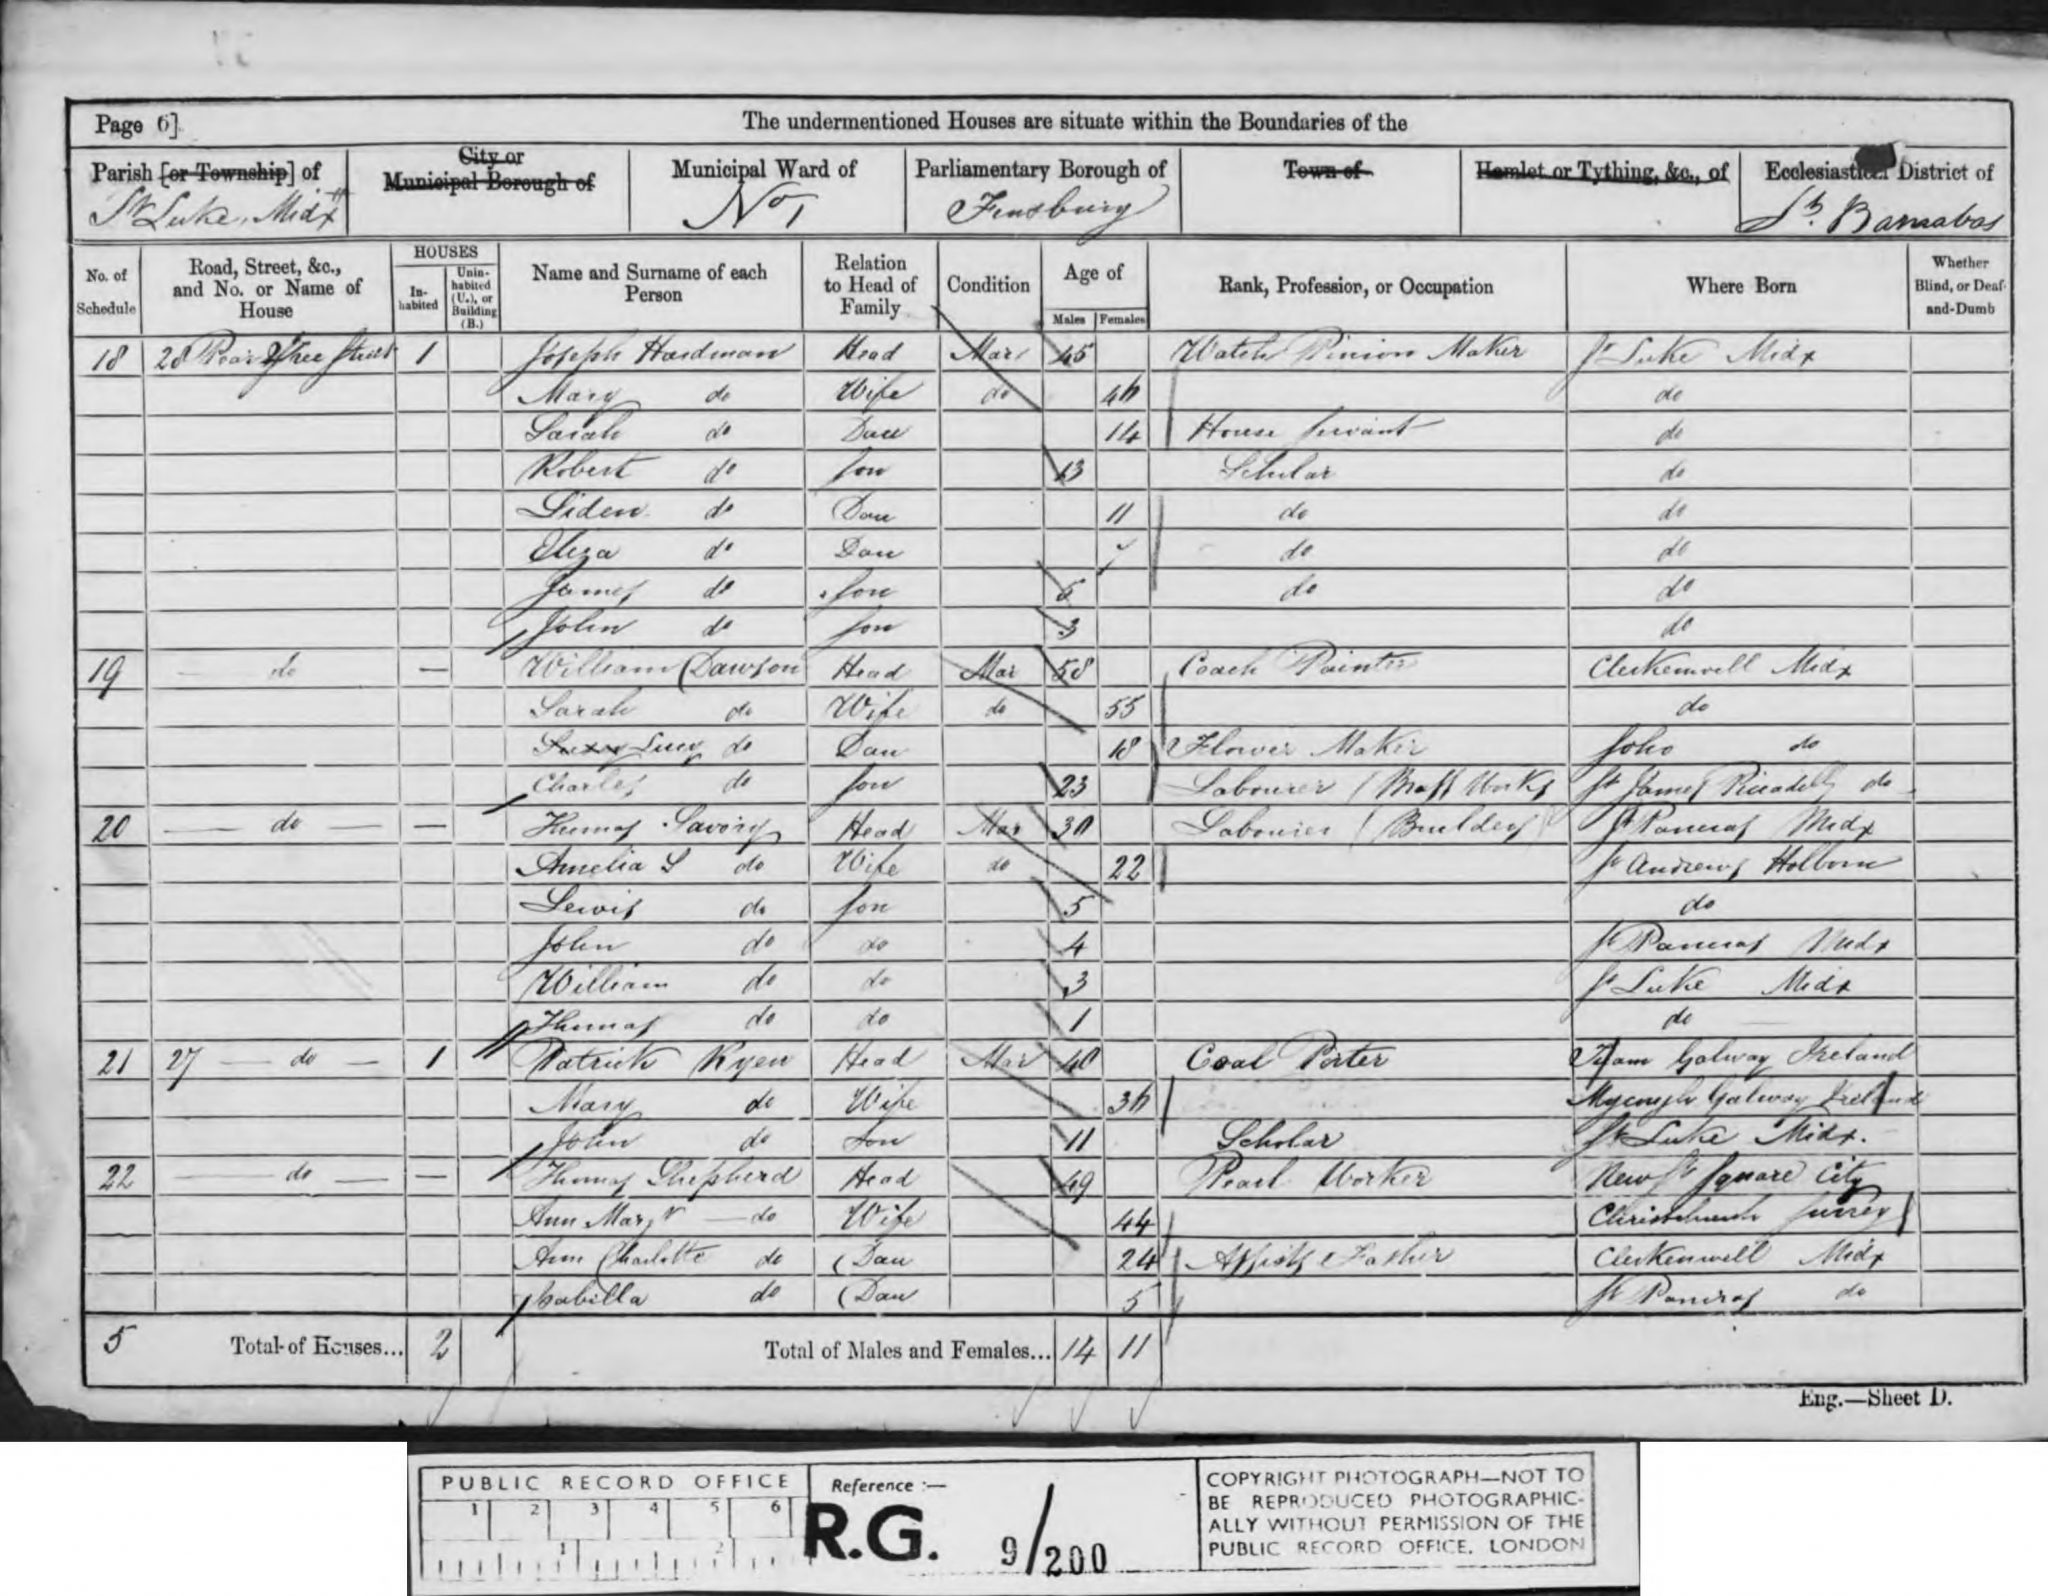 Page 6]
The undermentioned Houses are situate within the Boundaries of the
Parish [or Township] of
St Luke, Midx
City or Municipal Borough of
Municipal Ward of
No 1
Parliamentary Borough of
Finsbury
Town of
Hamlet or Tything, &c., of
Ecclesiastical District of
St. Barnabas
No. of Schedule
Road, Street, &c., and No. or Name of House
HOUSES
In-habited
Unin-habited (U.), or Building (B.)
Name and Surname of each Person
Relation to Head of Family
Condition
Age of
Males
Females
Rank, Profession, or Occupation
Where Born
Whether Blind, or Deaf-and-Dumb
18 28 Pear Tree Street 1 Joseph Hardman Head Mar 45 Watch Pinion Maker St Luke Midx
Mary do Wife do 46 do
Sarah do Dau 14 House Servant do
Robert do Son 13 Scholar do
do Dau 11 do do
Eliza do Dau do do
James do Son 5 do do
John do Son 3 do
19 — do — William Dawson Head Mar 58 Coach Painter Clerkenwell Midx
Sarah do Wife do 55 do
Lucy do Dau 18 Flower Maker Soho do
Charles do Son 23 Labourer (Brass Works St James Piccadilly do
20 — do — — Thomas Savory Head Mar 30 Labourer (Builders) St Pancras Midx
Amelia S do Wife do 22 St Andrews Holborn
Lewis do Son 5 do
John do do 4 St Pancras Midx
William do do 3 St Luke Midx
Thomas do do 1 do
21 27 — do — 1 Patrick Ryen Head Mar 40 Coal Porter Tuam Galway Ireland
Mary do Wife 36 Galway Ireland
John do Son 11 Scholar St Luke Midx.
22 — do — — Thomas Shepherd Head 49 Pearl Worker New St Square City
Ann Mary — do Wife 44 Christchurch Surrey
Ann Charlotte do Dau 24 Assists Father Clerkenwell Midx
Isabilla do Dau 5 St Pancras do
5 Total of Houses... 2 Total of Males and Females... 14 11
Eng.—Sheet D.
PUBLIC RECORD OFFICE
1 2 3 4 5 6
1 2
Reference :—
R.G. 9/200
COPYRIGHT PHOTOGRAPH—NOT TO
BE REPRODUCED PHOTOGRAPHIC-
ALLY WITHOUT PERMISSION OF THE
PUBLIC RECORD OFFICE, LONDON